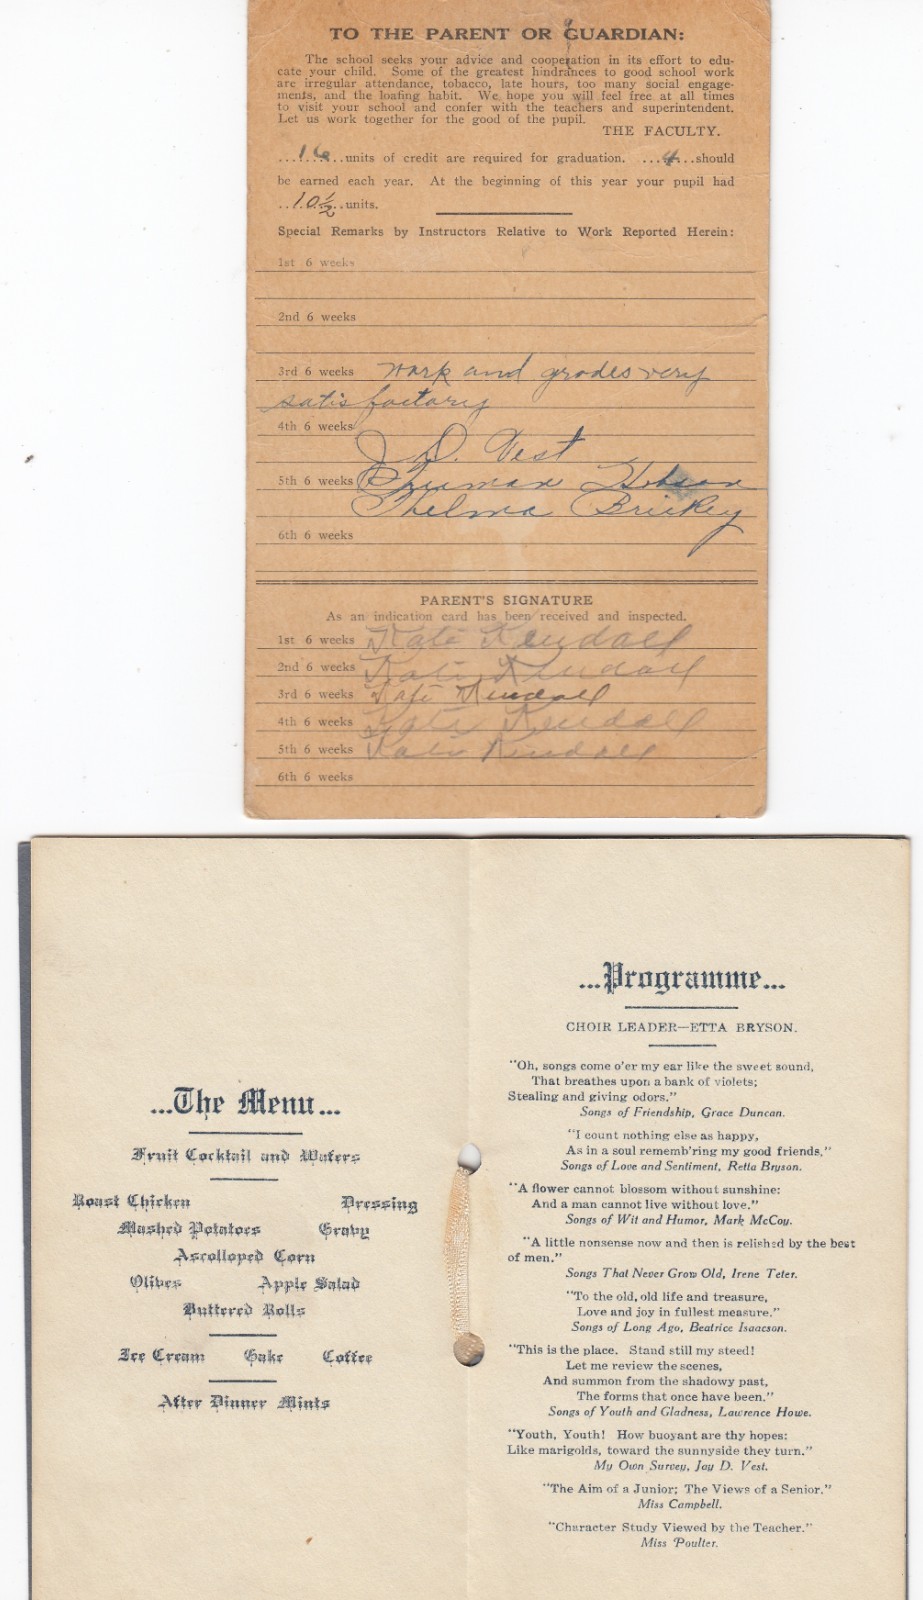 TO THE PARENT OR GUARDIAN:
The school seeks your advice and cooperation in its effort to edu-
cate your child. Some of the greatest hindrances to good school work
are irregular attendance, tobacco, late hours, too many social engage-
ments, and the loafing habit. We hope you will feel free at all times
to visit your school and confer with the teachers and superintendent.
Let us work together for the good of the pupil.
THE FACULTY.
...16...units of credit are required for graduation. ...4...should
be earned each year. At the beginning of this year your pupil had
..10½..units.
Special Remarks by Instructors Relative to Work Reported Herein:
1st 6 weeks
2nd 6 weeks
3rd 6 weeks work and grades very
satisfactory
4th 6 weeks
J. D. Vest
5th 6 weeks Truman Hobson
Thelma Brickey
6th 6 weeks
PARENT'S SIGNATURE
As an indication card has been received and inspected.
1st 6 weeks Kate Kendall
2nd 6 weeks Kate Kendall
3rd 6 weeks Kate Kendall
4th 6 weeks Kate Kendall
5th 6 weeks Kate Kendall
6th 6 weeks
...The Menu...
Fruit Cocktail and Wafers
Roast Chicken Dressing
Mashed Potatoes Gravy
Ascolloped Corn
Olives Apple Salad
Buttered Rolls
Ice Cream Cake Coffee
After Dinner Mints
...Programme...
CHOIR LEADER—ETTA BRYSON.
"Oh, songs come o'er my ear like the sweet sound,
That breathes upon a bank of violets;
Stealing and giving odors."
Songs of Friendship, Grace Duncan.
"I count nothing else as happy,
As in a soul rememb'ring my good friends,"
Songs of Love and Sentiment, Retta Bryson.
"A flower cannot blossom without sunshine:
And a man cannot live without love."
Songs of Wit and Humor, Mark McCoy.
"A little nonsense now and then is relished by the best
of men."
Songs That Never Grow Old, Irene Teter.
"To the old, old life and treasure,
Love and joy in fullest measure."
Songs of Long Ago, Beatrice Isaacson.
"This is the place. Stand still my steed!
Let me review the scenes,
And summon from the shadowy past,
The forms that once have been."
Songs of Youth and Gladness, Lawrence Howe.
"Youth, Youth! How buoyant are thy hopes:
Like marigolds, toward the sunnyside they turn."
My Own Survey, Jay D. Vest.
"The Aim of a Junior; The Views of a Senior."
Miss Campbell.
"Character Study Viewed by the Teacher."
Miss Poulter.